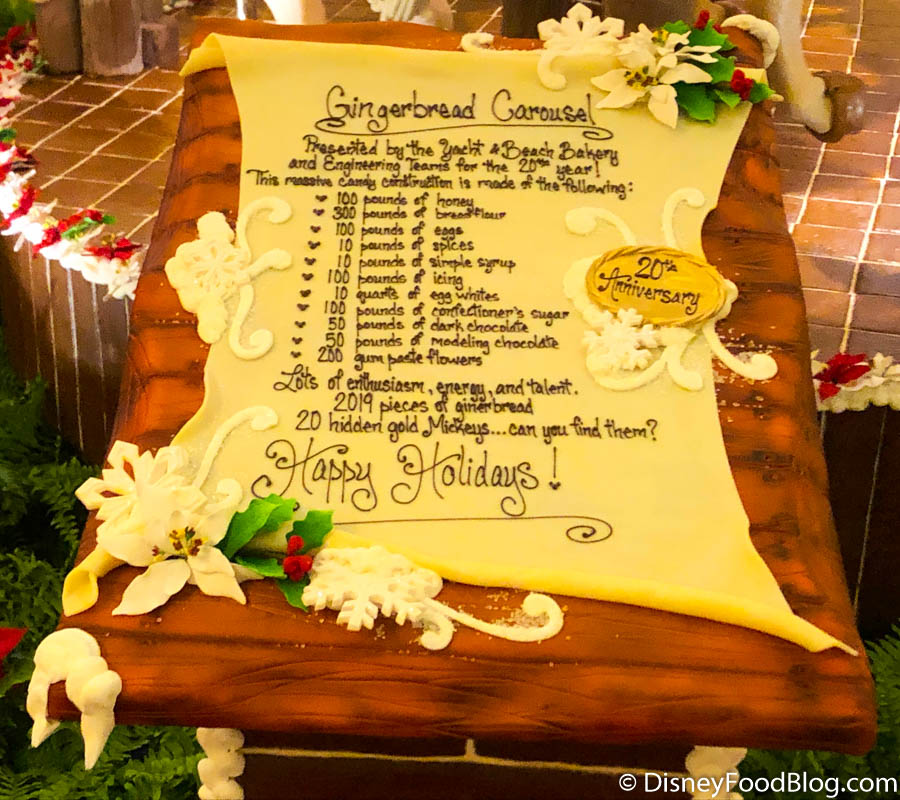 Gingerbread Carousel
Presented by the Yacht & Beach Bakery
and Engineering Teams for the 20th year!
This massive candy construction is made of the following:
100 pounds of honey
300 pounds of bread flour
100 pounds of eggs
10 pounds of spices
10 pounds of simple syrup
100 pounds of icing
10 quarts of egg whites
100 pounds of confectioner's sugar
50 pounds of dark chocolate
50 pounds of modeling chocolate
200 gum paste flowers
Lots of enthusiasm, energy, and talent.
2019 pieces of ginerbread
20 hidden gold Mickeys...can you find them?
Happy Holidays!
20th
Anniversary
© DisneyFoodBlog.com